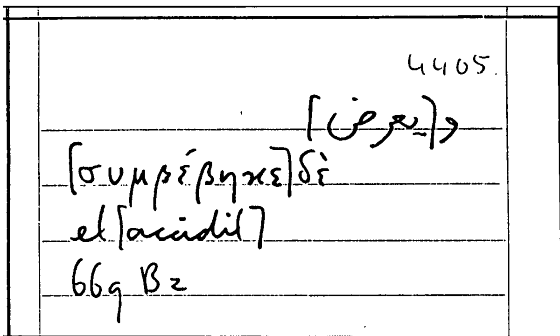 4405.
و[يعرض]
[συμβέβηκε]δὲ
et [accidit]
669 B2